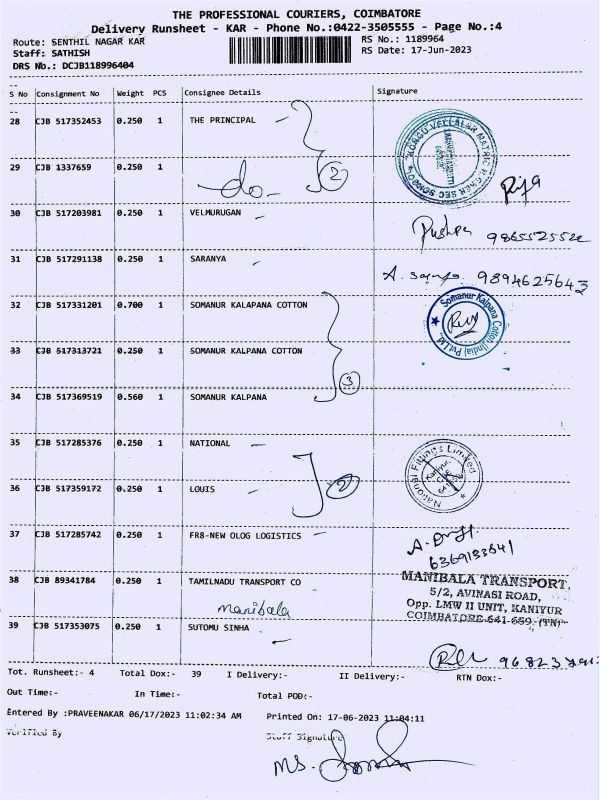 THE PROFESSIONAL COURIERS, COIMBATORE
Delivery Runsheet - KAR - Phone No.:0422-3505555 - Page No.:4
Route: SENTHIL NAGAR KAR
RS No.: 1189964
Staff: SATHISH
RS Date: 17-Jun-2023
DRS Nb.: DCJB118996404
S No Consignment No Weight PCS Consignee Details Signature
28 CJB 517352453 0.250 1 THE PRINCIPAL
29 CJB 1337659 0.250 1 do 2
30 CJB 517203981 0.250 1 VELMURUGAN
31 CJB 517291138 0.250 1 SARANYA 9894625643
32 CJB 517331201 0.700 1 SOMANUR KALAPANA COTTON
Somanur Kalpana Cotton (India) Pvt.Ltd.
33 CJB 517313721 0.250 1 SOMANUR KALPANA COTTON
3
34 CJB 517369519 0.560 1 SOMANUR KALPANA
35 CJB 517285376 0.250 1 NATIONAL
National Fittings Limited
36 CJB 517359172 0.250 1 LOUIS 2
37 CJB 517285742 0.250 1 FR8-NEW OLOG LOGISTICS
38 CJB 89341784 0.250 1 TAMILNADU TRANSPORT CO
manibala
MANIBALA TRANSPORT,
5/2, AVINASI ROAD,
Opp. LMW II UNIT, KANIYUR
COIMBATORE-641 659. (TN)
39 CJB 517353075 0.250 1 SUTOMU SINHA
Tot. Runsheet:- 4 Total Dox:- 39 I Delivery:- II Delivery:- RTN Dox:-
Out Time:- In Time:- Total POD:-
Entered By :PRAVEENAKAR 06/17/2023 11:02:34 AM Printed On: 17-06-2023 11:04:11
Verified By Staff Signature